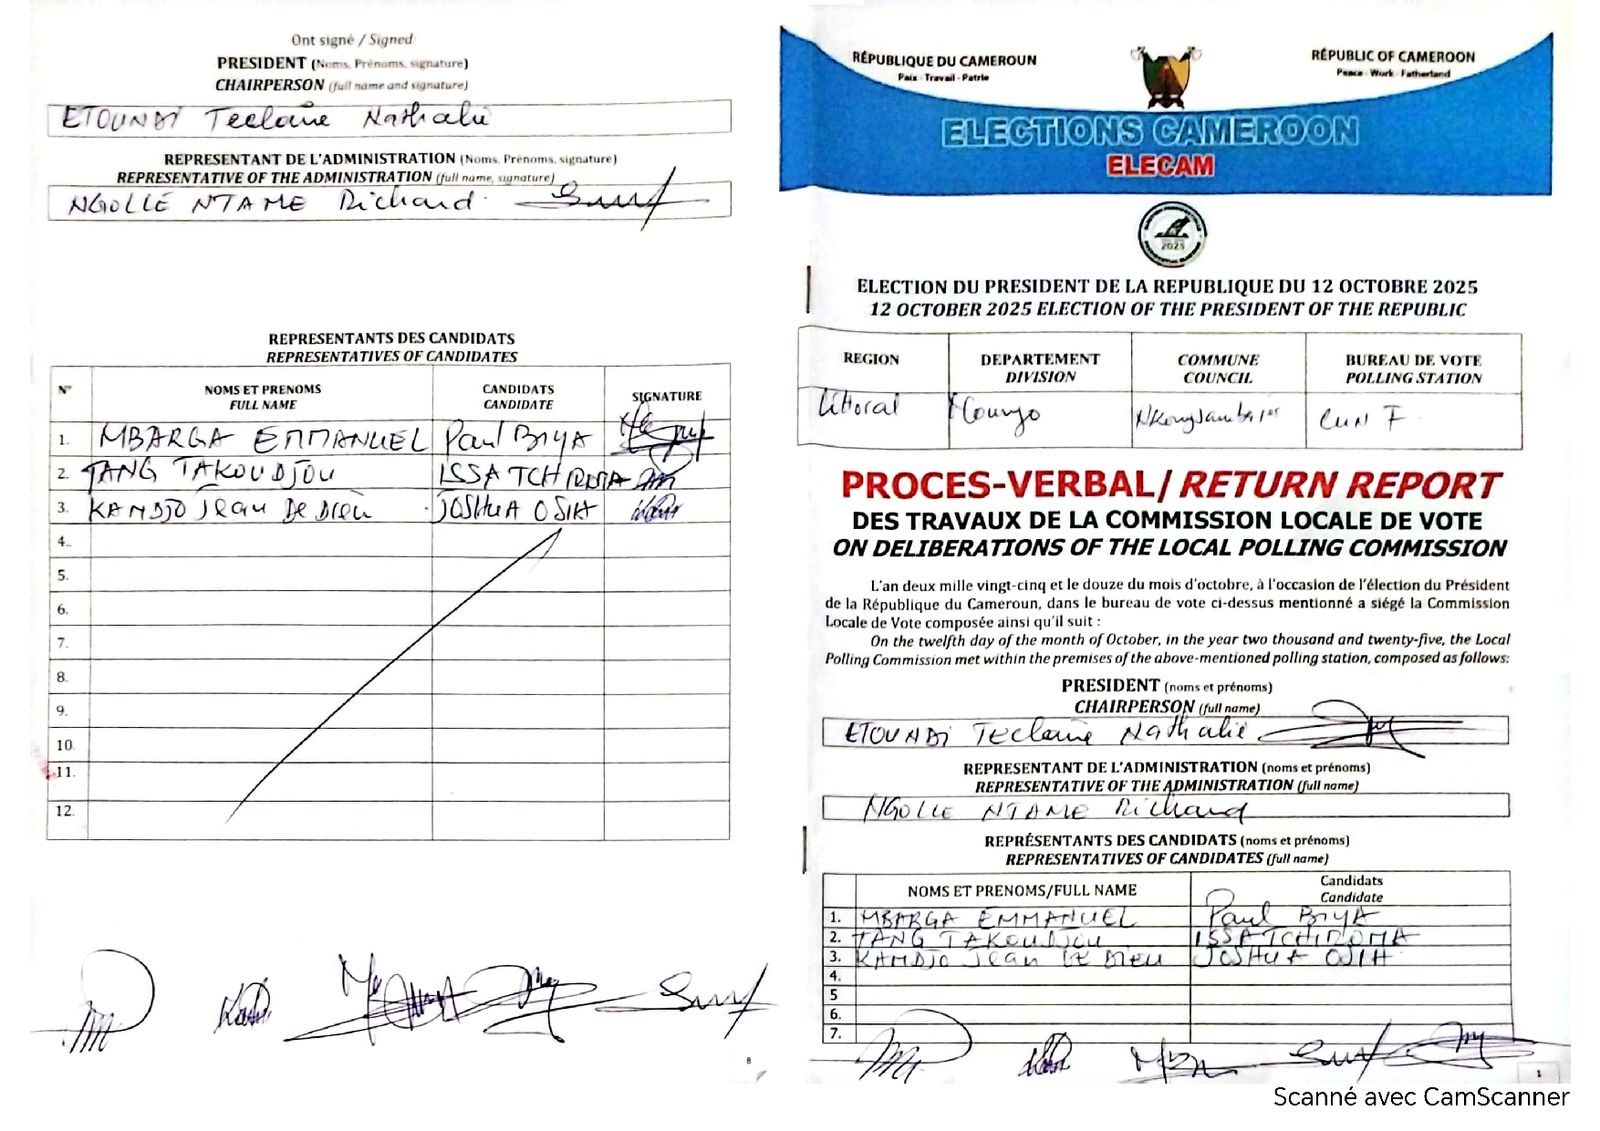 Ont signé / Signed:
PRESIDENT (Noms, Prénoms, signature)
CHAIRPERSON (full name and signature)
ETOUNDI Teclaire Nathalie
REPRESENTANT DE L'ADMINISTRATION (Noms, Prénoms, signature)
REPRESENTATIVE OF THE ADMINISTRATION (full name, signature)
NGOLLE NTAME Richard
REPRESENTANTS DES CANDIDATS
REPRESENTATIVES OF CANDIDATES
N° NOMS ET PRENOMS CANDIDATS SIGNATURE
FULL NAME CANDIDATE
1. MBARGA EMMANUEL Paul BIYA
2. TANG TAKOUDJOU ISSA TCHIROMA
3. KAMDJO Jean De Dieu JOSHUA OSIH
4.
5.
6.
7.
8.
9.
10.
11.
12.
8
RÉPUBLIQUE DU CAMEROUN
Paix - Travail - Patrie
RÉPUBLIC OF CAMEROON
Peace - Work - Fatherland
ELECTIONS CAMEROON
ELECAM
2025
ELECTION DU PRESIDENT DE LA REPUBLIQUE DU 12 OCTOBRE 2025
12 OCTOBER 2025 ELECTION OF THE PRESIDENT OF THE REPUBLIC
REGION DEPARTEMENT COMMUNE BUREAU DE VOTE
DIVISION COUNCIL POLLING STATION
Littoral Moungo Nkongsamba 1er F
PROCES-VERBAL/ RETURN REPORT
DES TRAVAUX DE LA COMMISSION LOCALE DE VOTE
ON DELIBERATIONS OF THE LOCAL POLLING COMMISSION
L'an deux mille vingt-cinq et le douze du mois d'octobre, à l'occasion de l'élection du Président
de la République du Cameroun, dans le bureau de vote ci-dessus mentionné a siégé la Commission
Locale de Vote composée ainsi qu'il suit :
On the twelfth day of the month of October, in the year two thousand and twenty-five, the Local
Polling Commission met within the premises of the above-mentioned polling station, composed as follows:
PRESIDENT (noms et prénoms)
CHAIRPERSON (full name)
ETOUNDI Teclaire Nathalie
REPRESENTANT DE L'ADMINISTRATION (noms et prénoms)
REPRESENTATIVE OF THE ADMINISTRATION (full name)
NGOLLE NTAME Richard
REPRÉSENTANTS DES CANDIDATS (noms et prénoms)
REPRESENTATIVES OF CANDIDATES (full name)
NOMS ET PRENOMS/FULL NAME Candidats
Candidate
1. MBARGA EMMANUEL Paul BIYA
2. TANG TAKOUDJOU ISSA TCHIROMA
3. KAMDJO Jean DE DIEU JOSHUA OSIH
4.
5
6.
7.
1
Scanné avec CamScanner